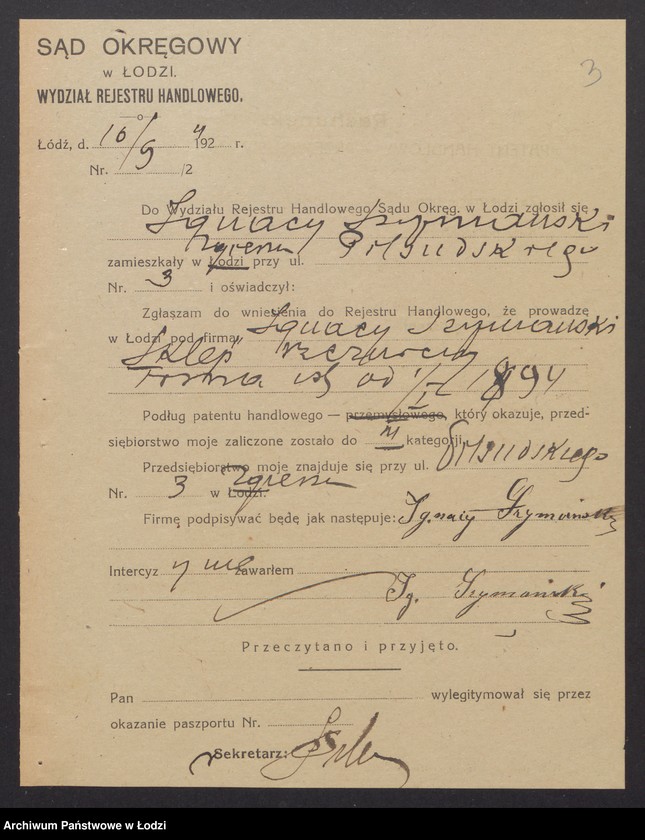 3
SĄD OKRĘGOWY
w ŁODZI.
WYDZIAŁ REJESTRU HANDLOWEGO.
Łódź, d. 16/9 1924 r.
Nr. /2
Do Wydziału Rejestru Handlowego Sądu Okręg. w Łodzi zgłosił się
Ignacy Szymański
zamieszkały w Łodzi Zgierzu przy ul. Piłsudskiego
Nr. 3 i oświadczył:
Zgłaszam do wniesienia do Rejestru Handlowego, że prowadzę
w Łodzi pod firmą Ignacy Szymański
Sklep
Firma istn od 1/I 1894
Podług patentu handlowego — przemysłowego, który okazuje, przed-
siębiorstwo moje zaliczone zostało do III kategorji.
Przedsiębiorstwo moje znajduje się przy ul. Piłsudskiego
Nr. 3 w Łodzi. Zgierzu
Firmę podpisywać będę jak następuje: Ignacy Szymański
Intercyz y nie zawarłem
Ig. Szymański
Przeczytano i przyjęto.
Pan wylegitymował się przez
okazanie paszportu Nr.
Sekretarz:
Archiwum Państwowe w Łodzi